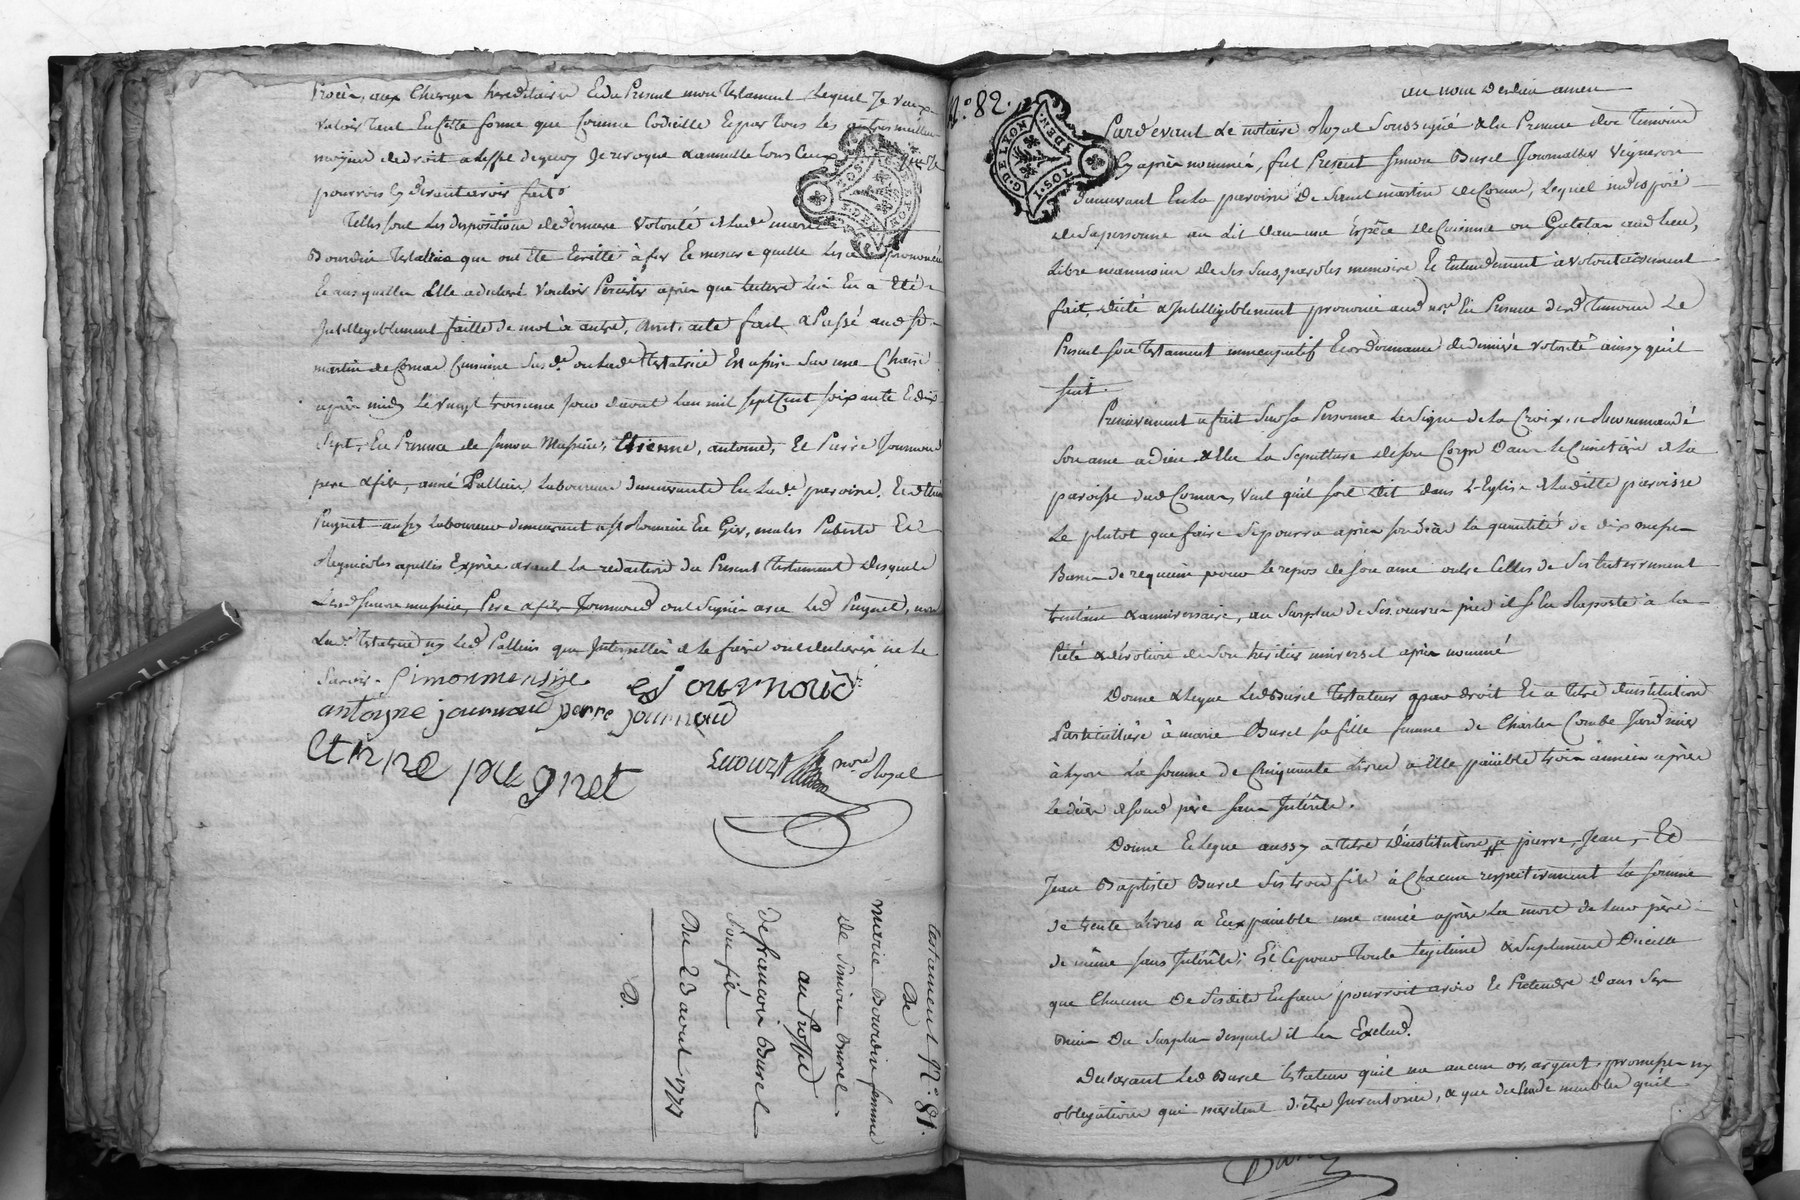 Procès, aux Charges hereditaires Et du Present mon testament, Lequel Je veux
valoir tant En Cette forme que Comme Codicille Et par tous les autres meilleurs
moyens de droit a L'effet de quoy Je revoque & annulle tous Ceux que Je
pourrois Cy devant avoir fait
Telles sont Les dispositions de derniere volonté de Lade marie
Bourdin testatrice que ont Eté Ecrittes à fur Et mesure quelle Les a prononcées
Et auxquelles Elle a declaré vouloir Persister après que Lecture Luy En a Eté
Intelligiblement faitte de mot à autre, dont acte fait & Passé aud St
martin de Cornas Cuisine Susde ou Lade testatrice Est assise Sur une Chaise
après midy Le vingt troisieme Jour d'avril L'an mil Sept Cent Soixante Et dix
Sept, En Presence de Simon Massire, Etienne, antoine, Et Pierre Journoud
pere & fils, aimé Pallein, Laboureurs demeurants En Lade paroisse, Et Etienne
Pugnet aussy Laboureur demeurant a St Romain En Gier, males Puberes Et
Regnicoles apellés Exprès avant La redaction du Present testament Desquels
Lesd Simon massire, Pere & fils Journoud ont Signé avec Led Pugnet, non
Lade testatrice ny Led Pallein que Interpellés de Le faire ont declaré ne Le
Savoir.
Simon mensire
e journoud
antoyne journoud perre journoud
Etinne pugnet
nore Royal
testament No 81.
De
marie Bourdin femme
de Simon Burel
au Proffit
De francois Burel
Son fils
Du 23 avril 1777
D.
No 82.
G. DE LYON
au nom de dieu amen
Pardevant Le notaire Royal Soussigné & En Presence des temoins
Cy après nommés, fut Present Simon Burel Journallier Vigneron
demeurant En La paroisse De Saint martin de Cornas, Lequel indisposé
de Sa personne au Lit dans une Espèce de Cuisine ou Galetas aud Lieu,
Libre neanmoins de Ses Sens, paroles memoire Et Entendement à volontairement
fait, dicté & Intelligiblement prononcé aud nore En Presence desd temoins Le
Present Son testament nuncupatif Et ordonnance de derniere volonté ainsy qu'il
Suit
Premierement a fait Sur Sa Personne Le Signe de La Croix, a Recommandé
Son ame a Dieu & Elu La Sepulture de Son Corps Dans Le Cimetière de La
paroisse dud Cornas, Veut qu'il Soit dit dans L'Eglise de Laditte paroisse
Le plutot que faire Se pourra après Son decès La quantité de dix messes
Basses de requiem pour Le repos de Son ame outre Celles de Ses Enterrement
trentain & anniversaire, au Surplus de Ses oeuvres pies il S'En Raporte à La
Pieté & devotion de Son heritier universel après nommé
Donne & Legue Led Burel testateur par droit Et a titre d'institution
Particulière à marie Burel Sa fille femme de Charles Combe Jardinier
à Lyon La Somme de Cinquante Livres a Elle paiable trois années après
Le decès de Son d père Sans Intérêts.
Donne Et Legue aussy a titre D'institution, a pierre, Jean, Et
Jean Baptiste Burel Ses trois fils à Chacun respectivement La Somme
de trente Livres a Eux paiable une année après La mort de Leur père
de même Sans Intérêts; Et Ce pour Toute Legitime & Suplement D'icelle
que Chacun De Sesdits Enfans pourroit avoir Et Pretendre Dans Ses
Biens Du Surplus desquels il Les Exclud.
Declarant Led Burel testateur qu'il n'a aucun or, argent, promesses ny
obligations qui meritent d'être Inventoriés, & que des Seuls meubles qu'il